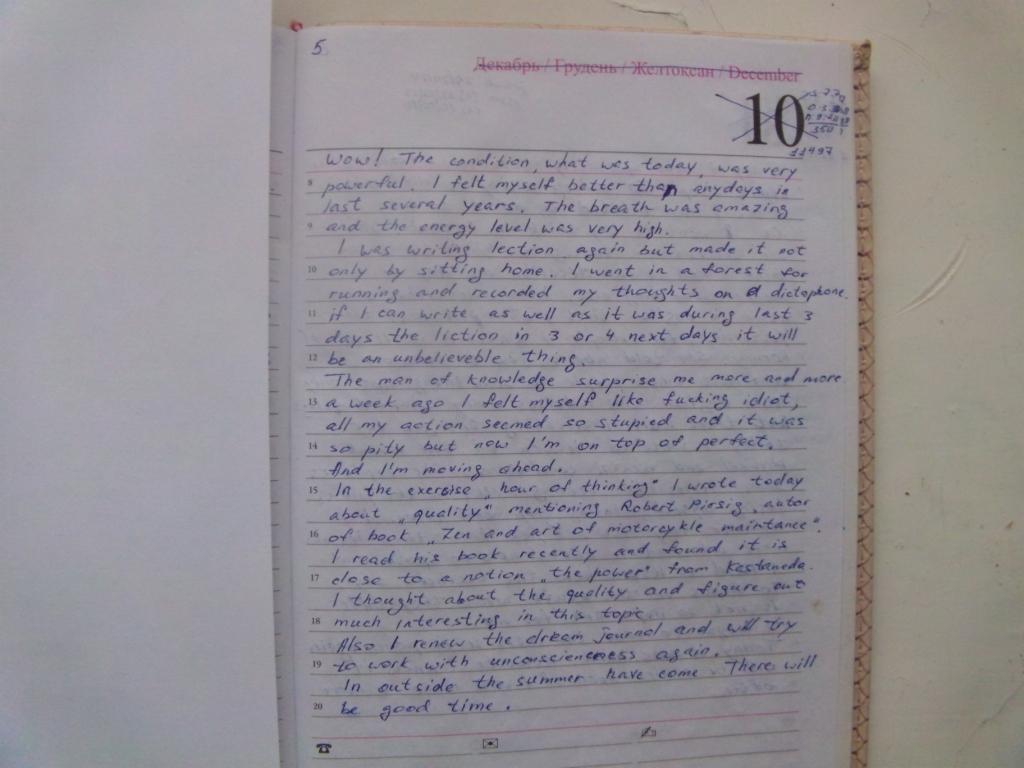 5
Декабрь / Грудень / Желтоксан / December
10
11497
Wow! The condition, what was today, was very
8 powerful. I felt myself better than anydays in
last several years. The breath was amazing
9 and the energy level was very high.
I was writing lection again but made it not
10 only by sitting home. I went in a forest for
running and recorded my thoughts on a dictophone.
11 if I can write as well as it was during last 3
days the liction in 3 or 4 next days it will
12 be an unbelieveble thing.
The man of knowledge surprise me more and more
13 a week ago I felt myself like fucking idiot,
all my action seemed so stupied and it was
14 so pity but now I'm on top of perfect.
And I'm moving ahead.
15 In the exercise „hour of thinking" I wrote today
about „quality" mentioning Robert Pirsig, autor
16 of book „Zen and art of motorcykle maintance".
I read his book recently and found it is
17 close to a notion „the power" from Kastaneda.
I thought about the quality and figure out
18 much interesting in this topic
Also I renew the dream journal and will try
19 to work with unconscieness again.
In outside the summer have come. There will
20 be good time.